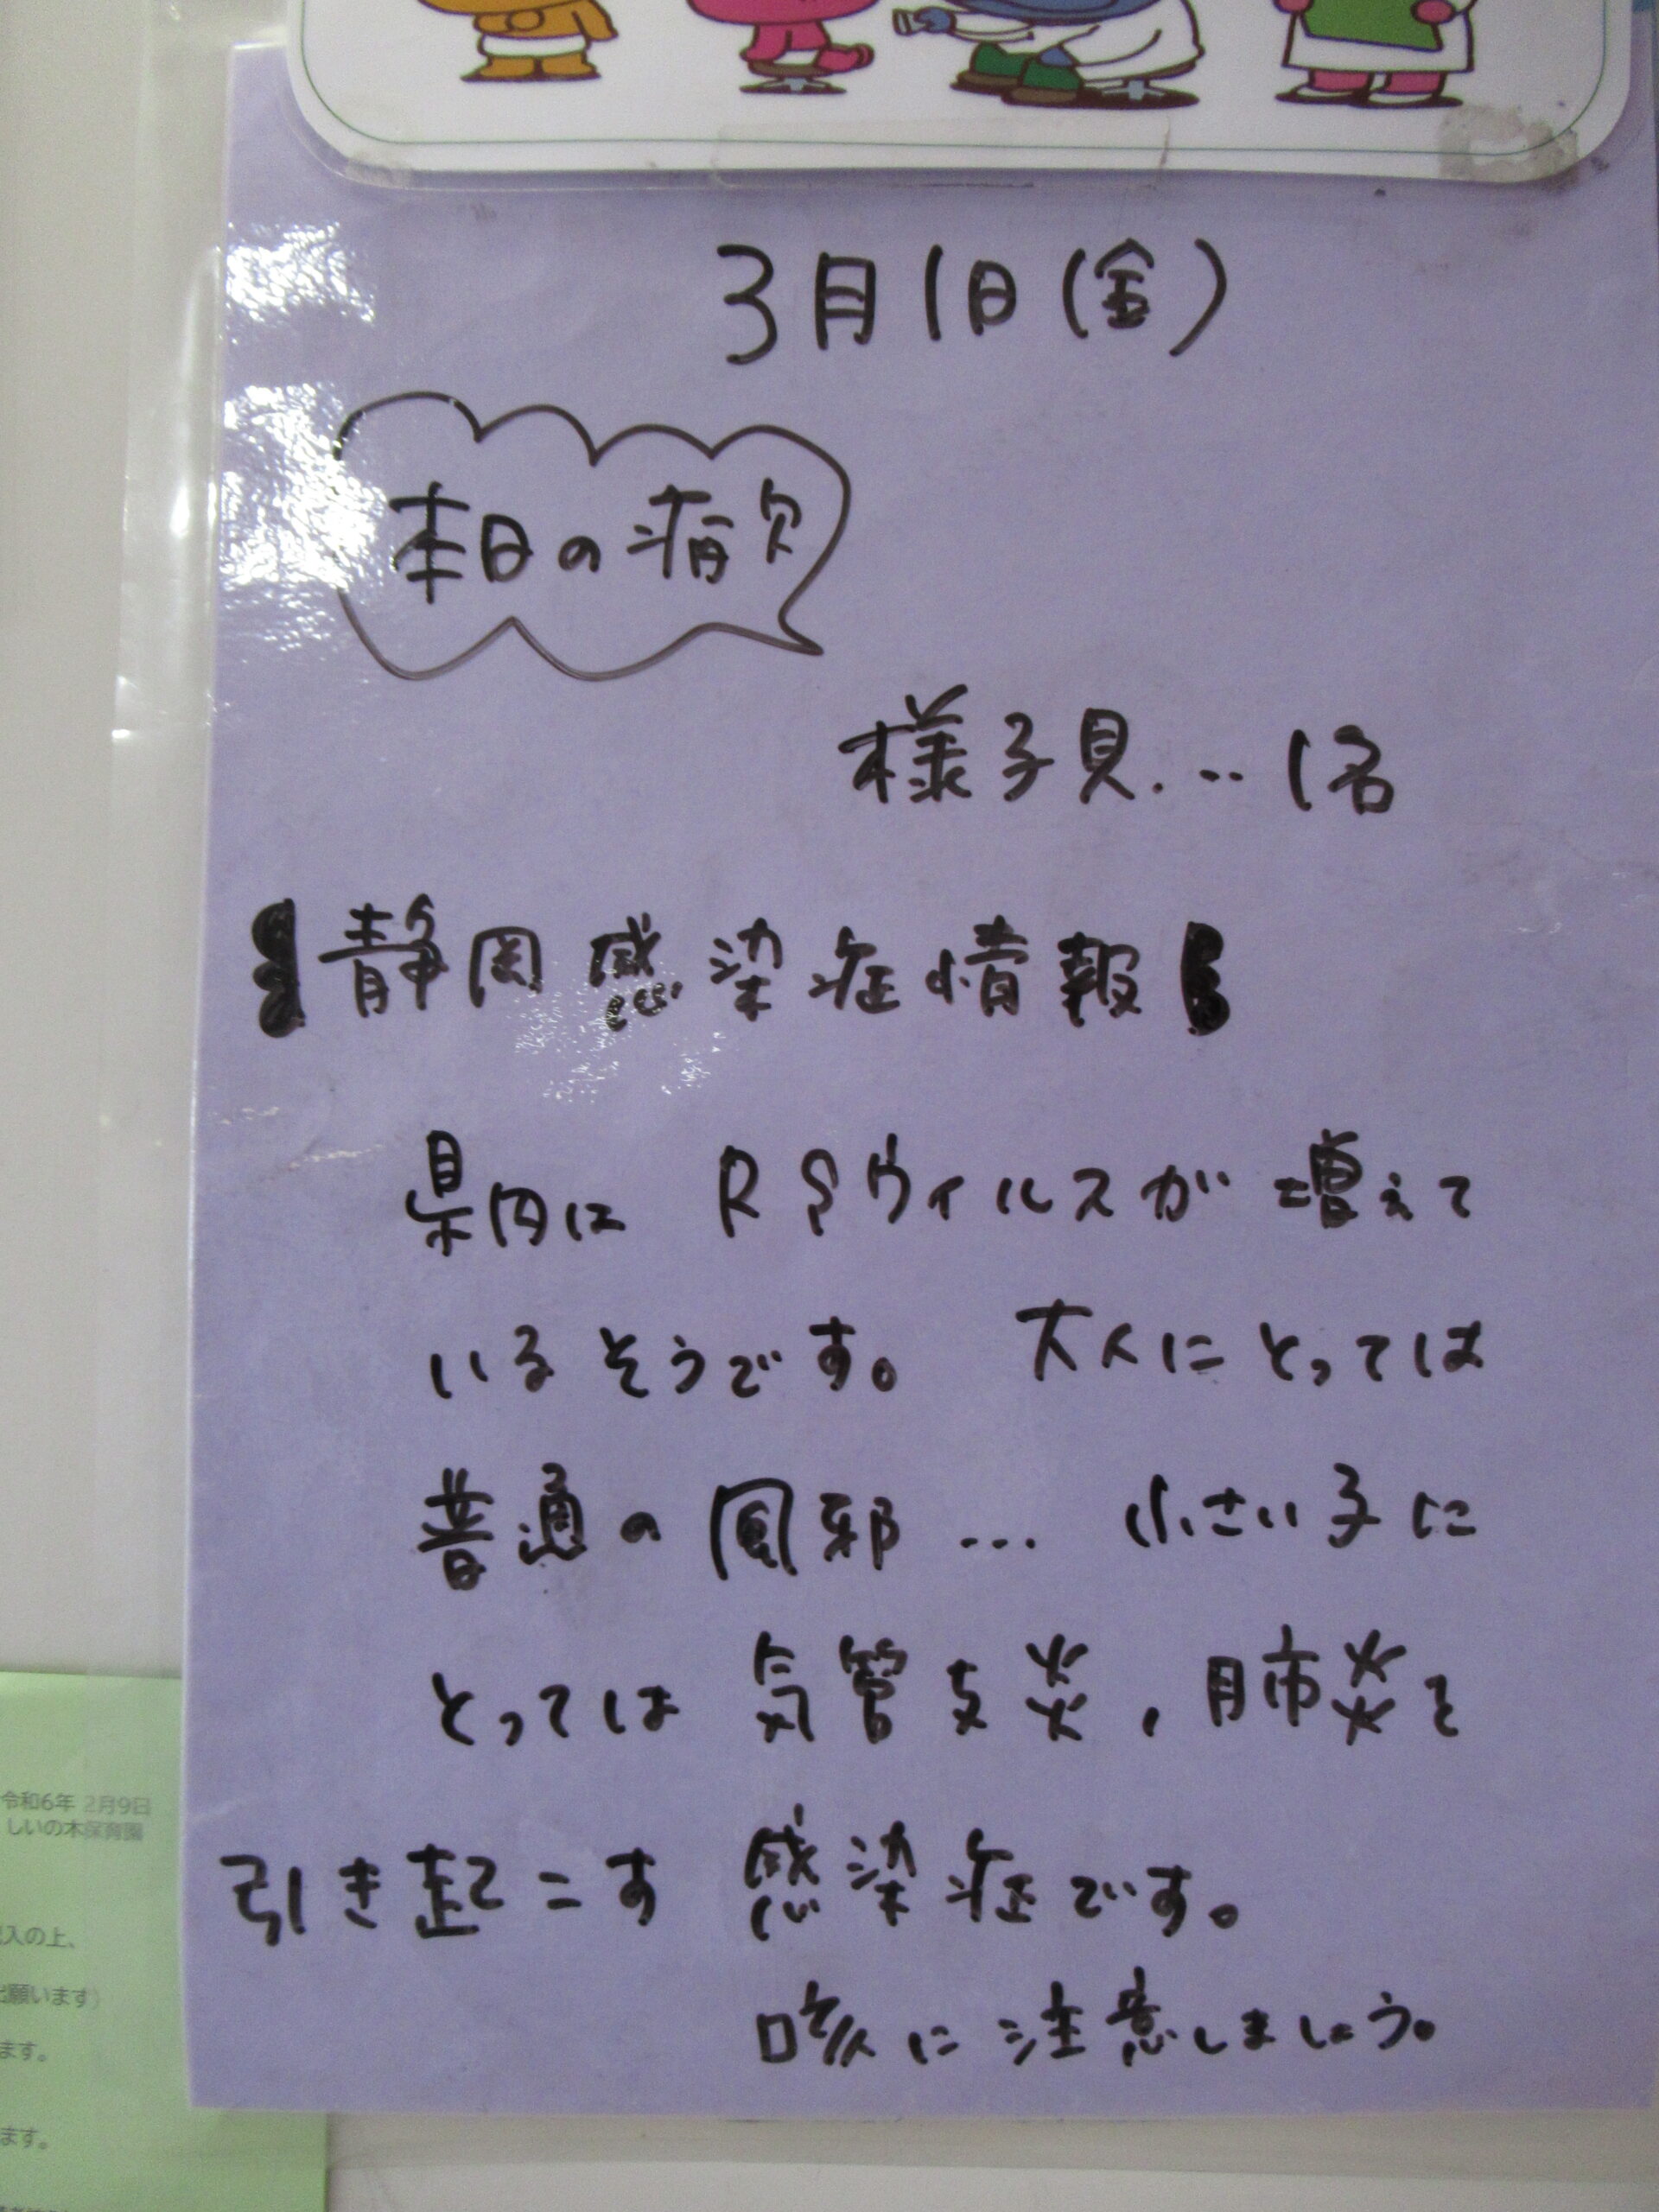 3月1日(金)
本日の病欠
様子見…1名
【静岡感染症情報】
県内に RSウィルスが 増えて
いるそうです。 大人にとっては
普通の風邪… 小さい子に
とっては 気管支炎、肺炎を
引き起こす 感染症です。
咳に注意しましょう。
令和6年 2月9日
しいの木保育園
入の上、
願います)
ます。
ます。